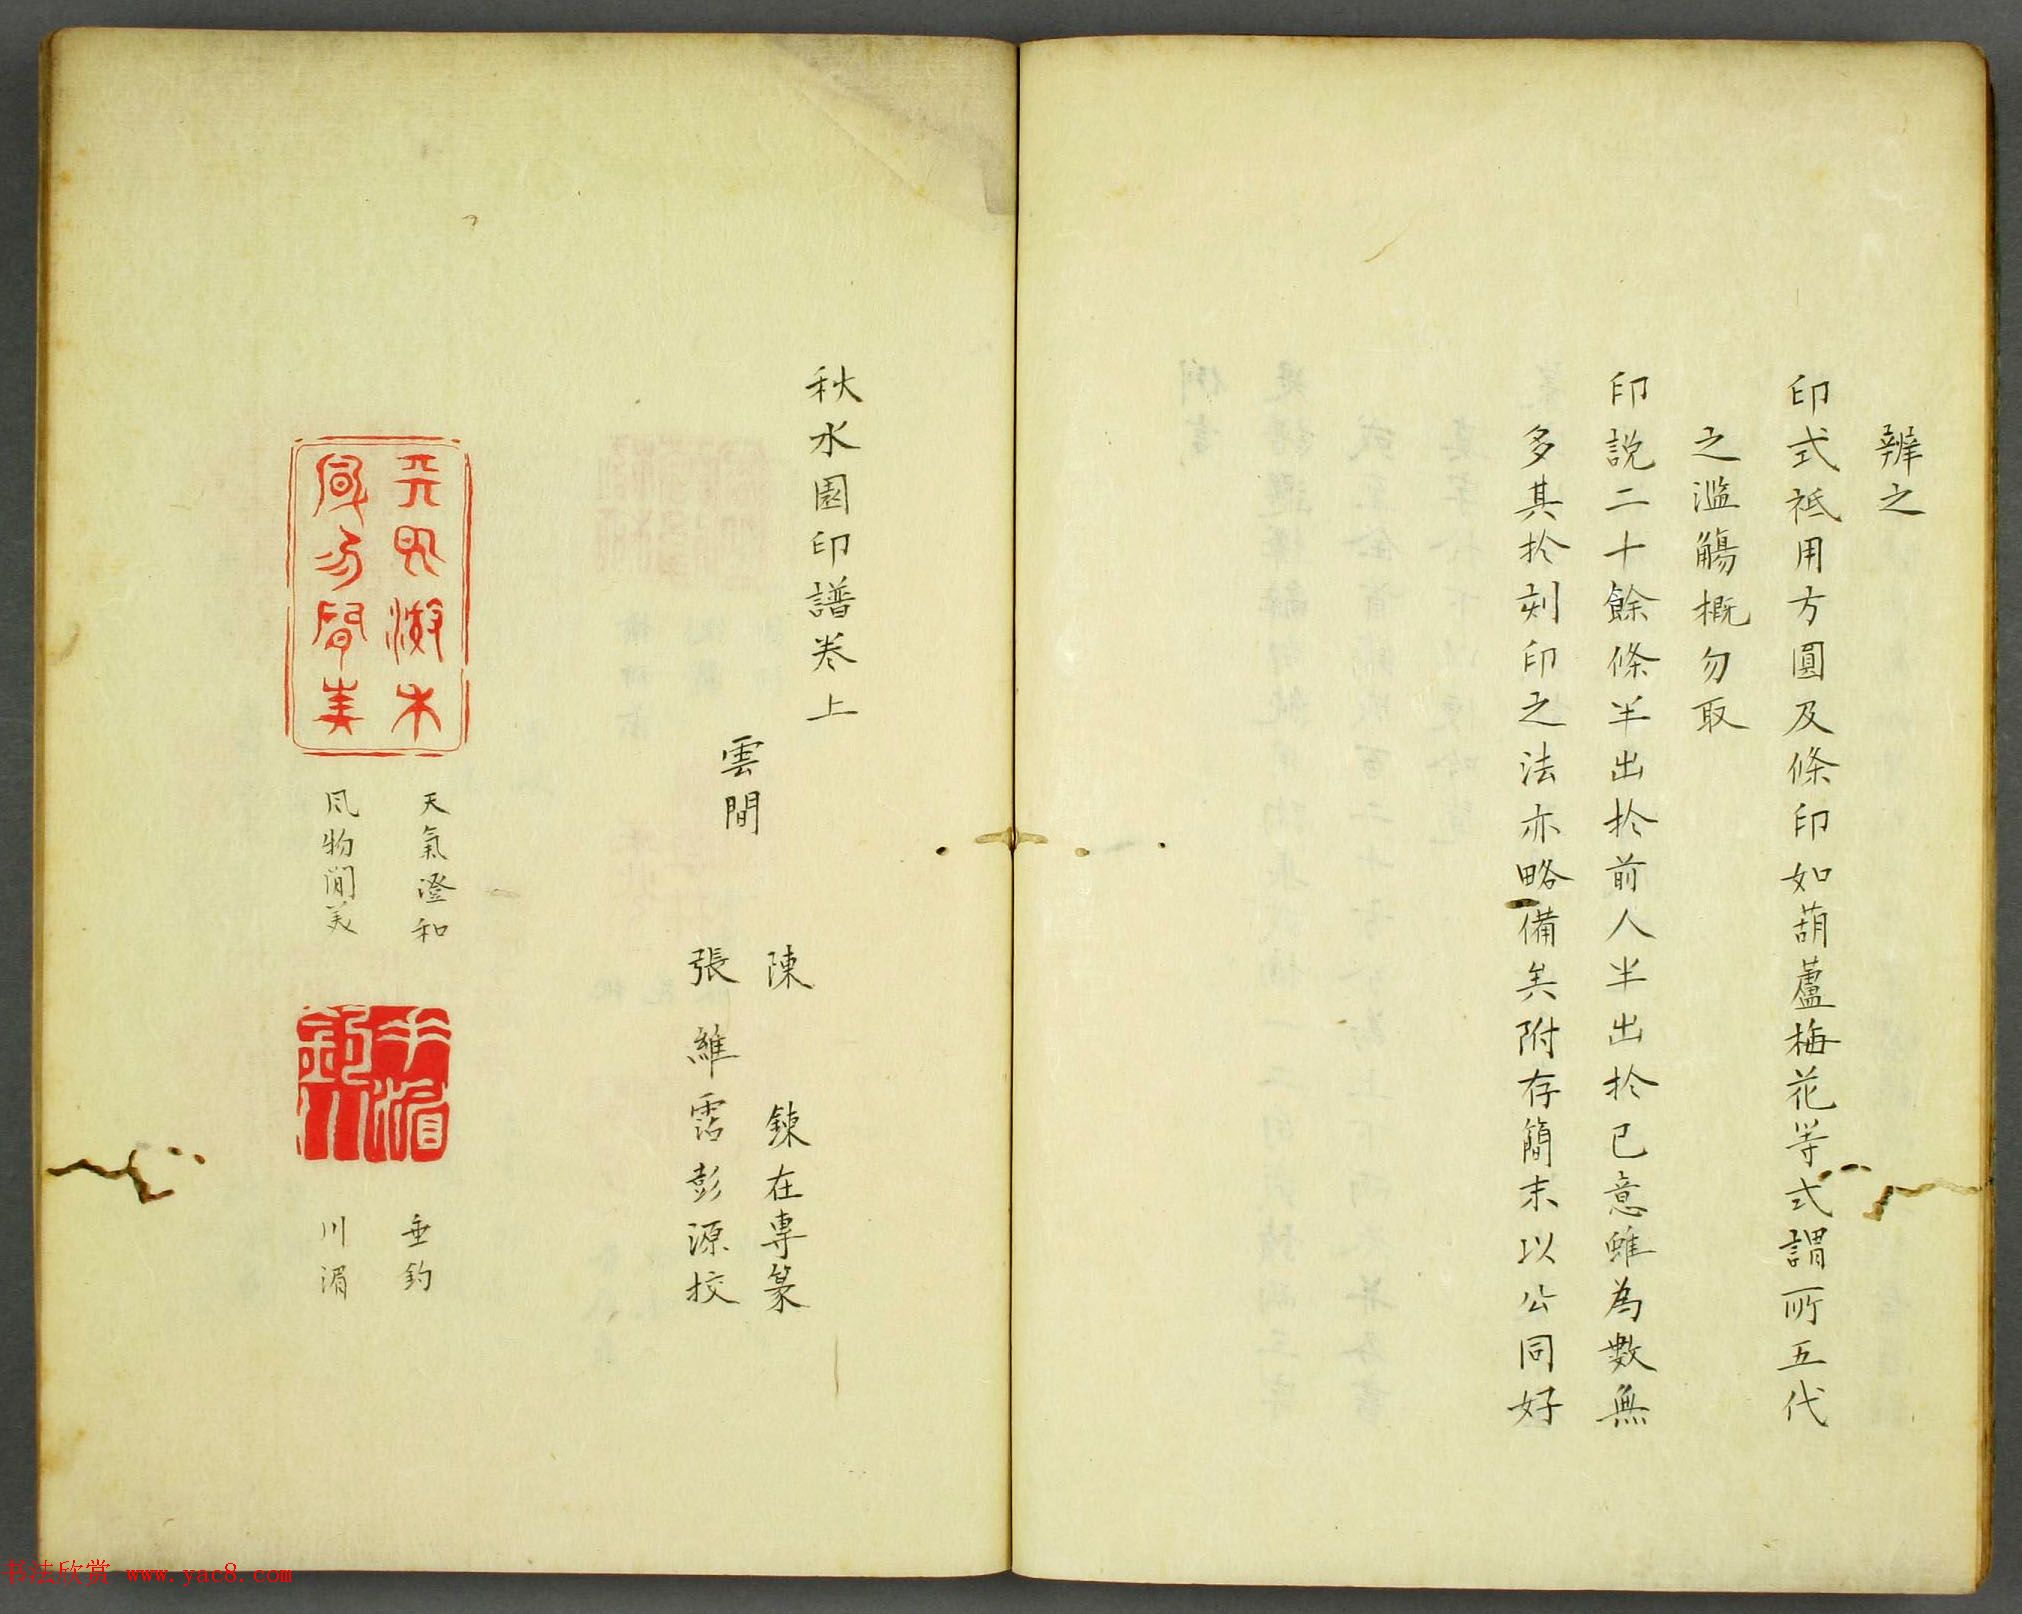 辨之
印式祗用方圓及條印如葫蘆梅花等式謂所五代
之濫觴概勿取
印說二十餘條半出於前人半出於己意雖為數無
多其於刻印之法亦略備矣附存簡末以公同好
秋水園印譜卷上
雲間
陳鍊在專篆
張維霑彭源挍
天氣澄和
風物閒美
天氣澄和
風物閒美
垂釣
川湄
垂釣
川湄
书法欣赏 www.yac8.com